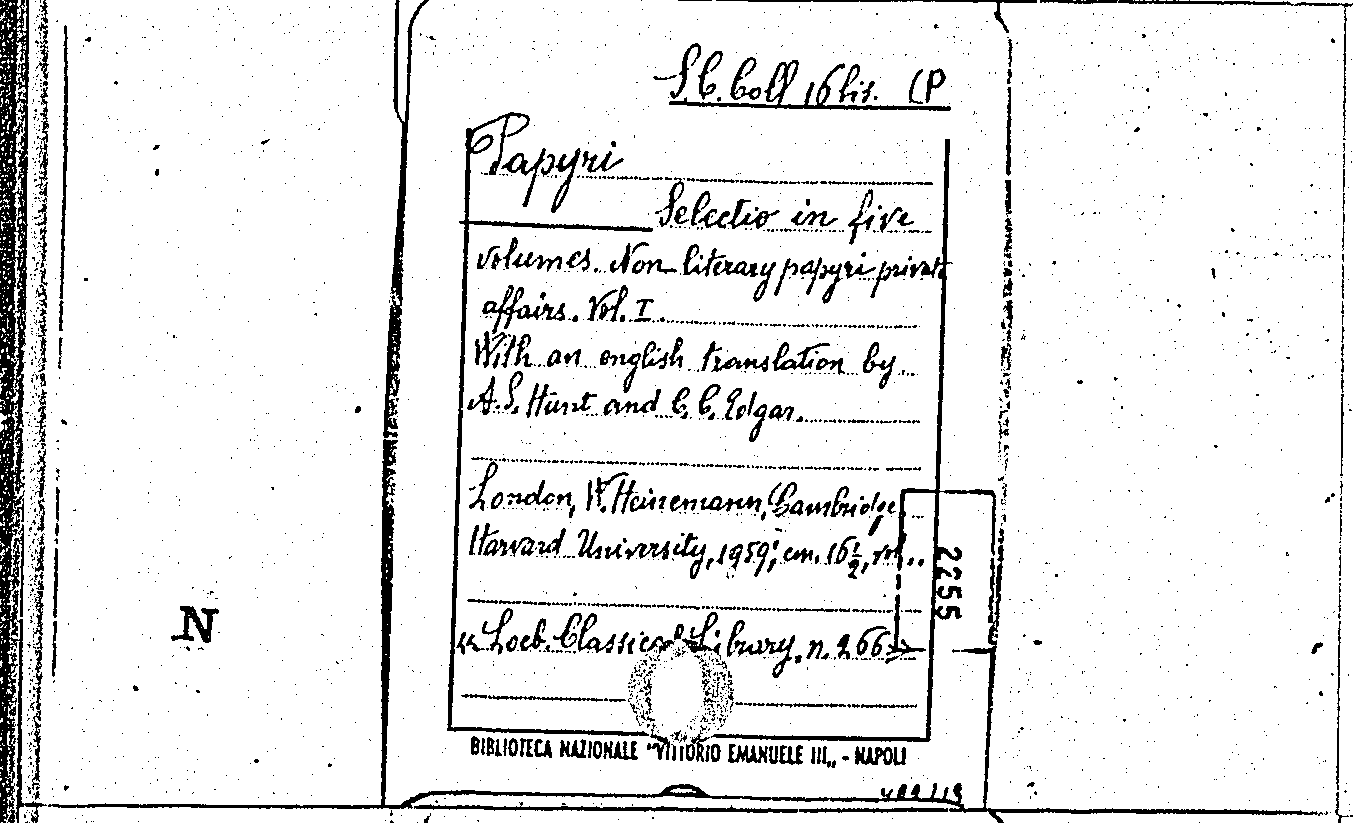 S.C. Coll 16 bis. (P
Papyri
Selectio in five
volumes. Non literary papyri private
affairs. Vol. I.
With an english translation by
A.S. Hunt and C.C. Edgar.
London, W. Heinemann, Cambridge,
Harvard University, 1959; cm. 16½,
2255
« Loeb Classical Library, n. 266 »
N
BIBLIOTECA NAZIONALE "VITTORIO EMANUELE III„ - NAPOLI